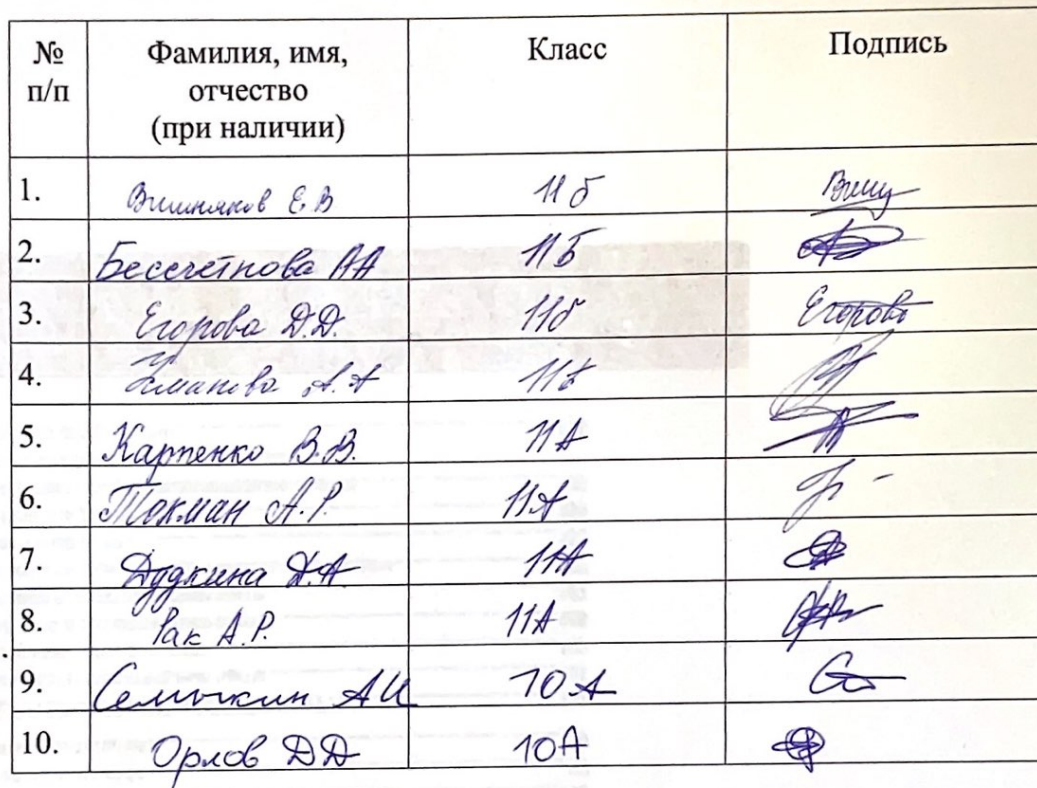 № п/п Фамилия, имя, отчество (при наличии) Класс Подпись
1. Вишняков Е.В 11б Виш
2. Бессчётнова АА 11Б
3. Егорова Д.Д. 11б Егорова
4. А.А 11б
5. Карпенко В.В. 11А
6. Токман А.Р. 11А
7. Дудкина Д.А. 11А
8. Рак А.Р. 11А
9. Семыкин АИ 10А
10. Орлов ДД 10А